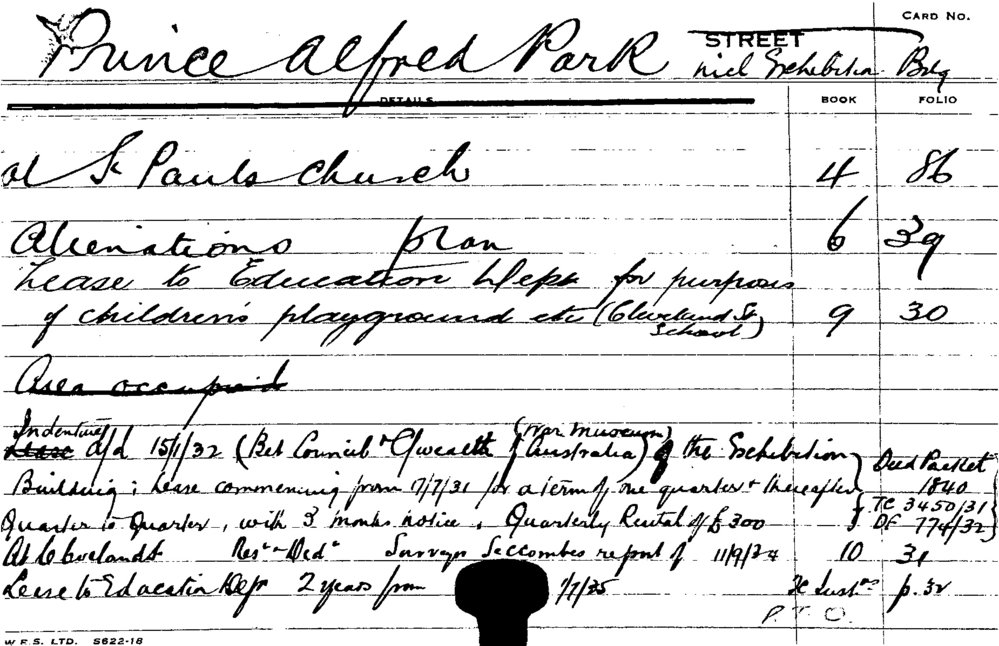 CARD No.
Prince Alfred Park STREET
incl Exhibition Bdg
DETAILS BOOK FOLIO
at St Pauls Church 4 86
Alienations plan 6 39
Lease to Education Dept for purposes
of children's playground etc (Cleveland St School) 9 30
Area occupied
Indenture Lease d/d 15/1/32 (Bet Council & C/wealth of Australia) (War Museum) of the Exhibition Deed Packet
Building; Lease commencing from 7/7/31 for a term of one quarter & thereafter 1840
Quarter to Quarter, with 3 months notice. Quarterly Rental of £300 TC 3450/31
DF 774/32
At Cleveland St Res Ded Surveyor Seccombes report of 11/9/34 10 31
Lease to Education Dept 2 years from 1/7/35 p. 32
P.T.O.
W.F.S. LTD. S622-18